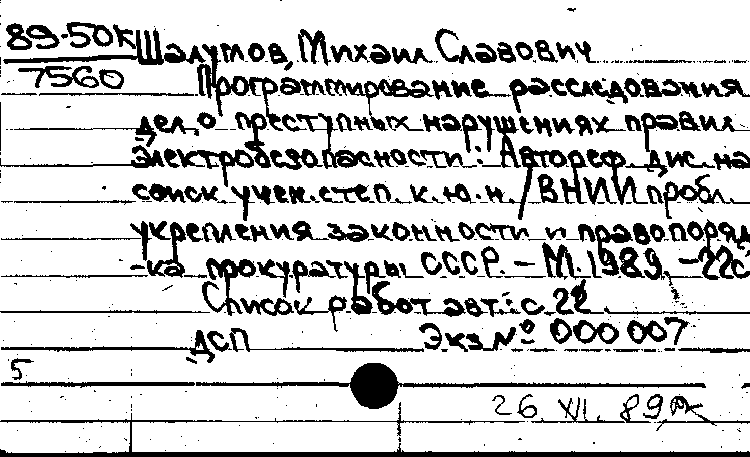 89-50к Шалумов, Михаил Славович
7560 Программирование расследования
дел о преступных нарушениях правил
электробезопасности: Автореф. дис. на
соиск. учен. степ. к.ю.н. / ВНИИ пробл.
укрепления законности и правопоряд-
-ка прокуратуры СССР. - М. 1989. - 22с
Список работ авт.: с. 22.
ДСП Экз № 000007
5
26. XI. 89